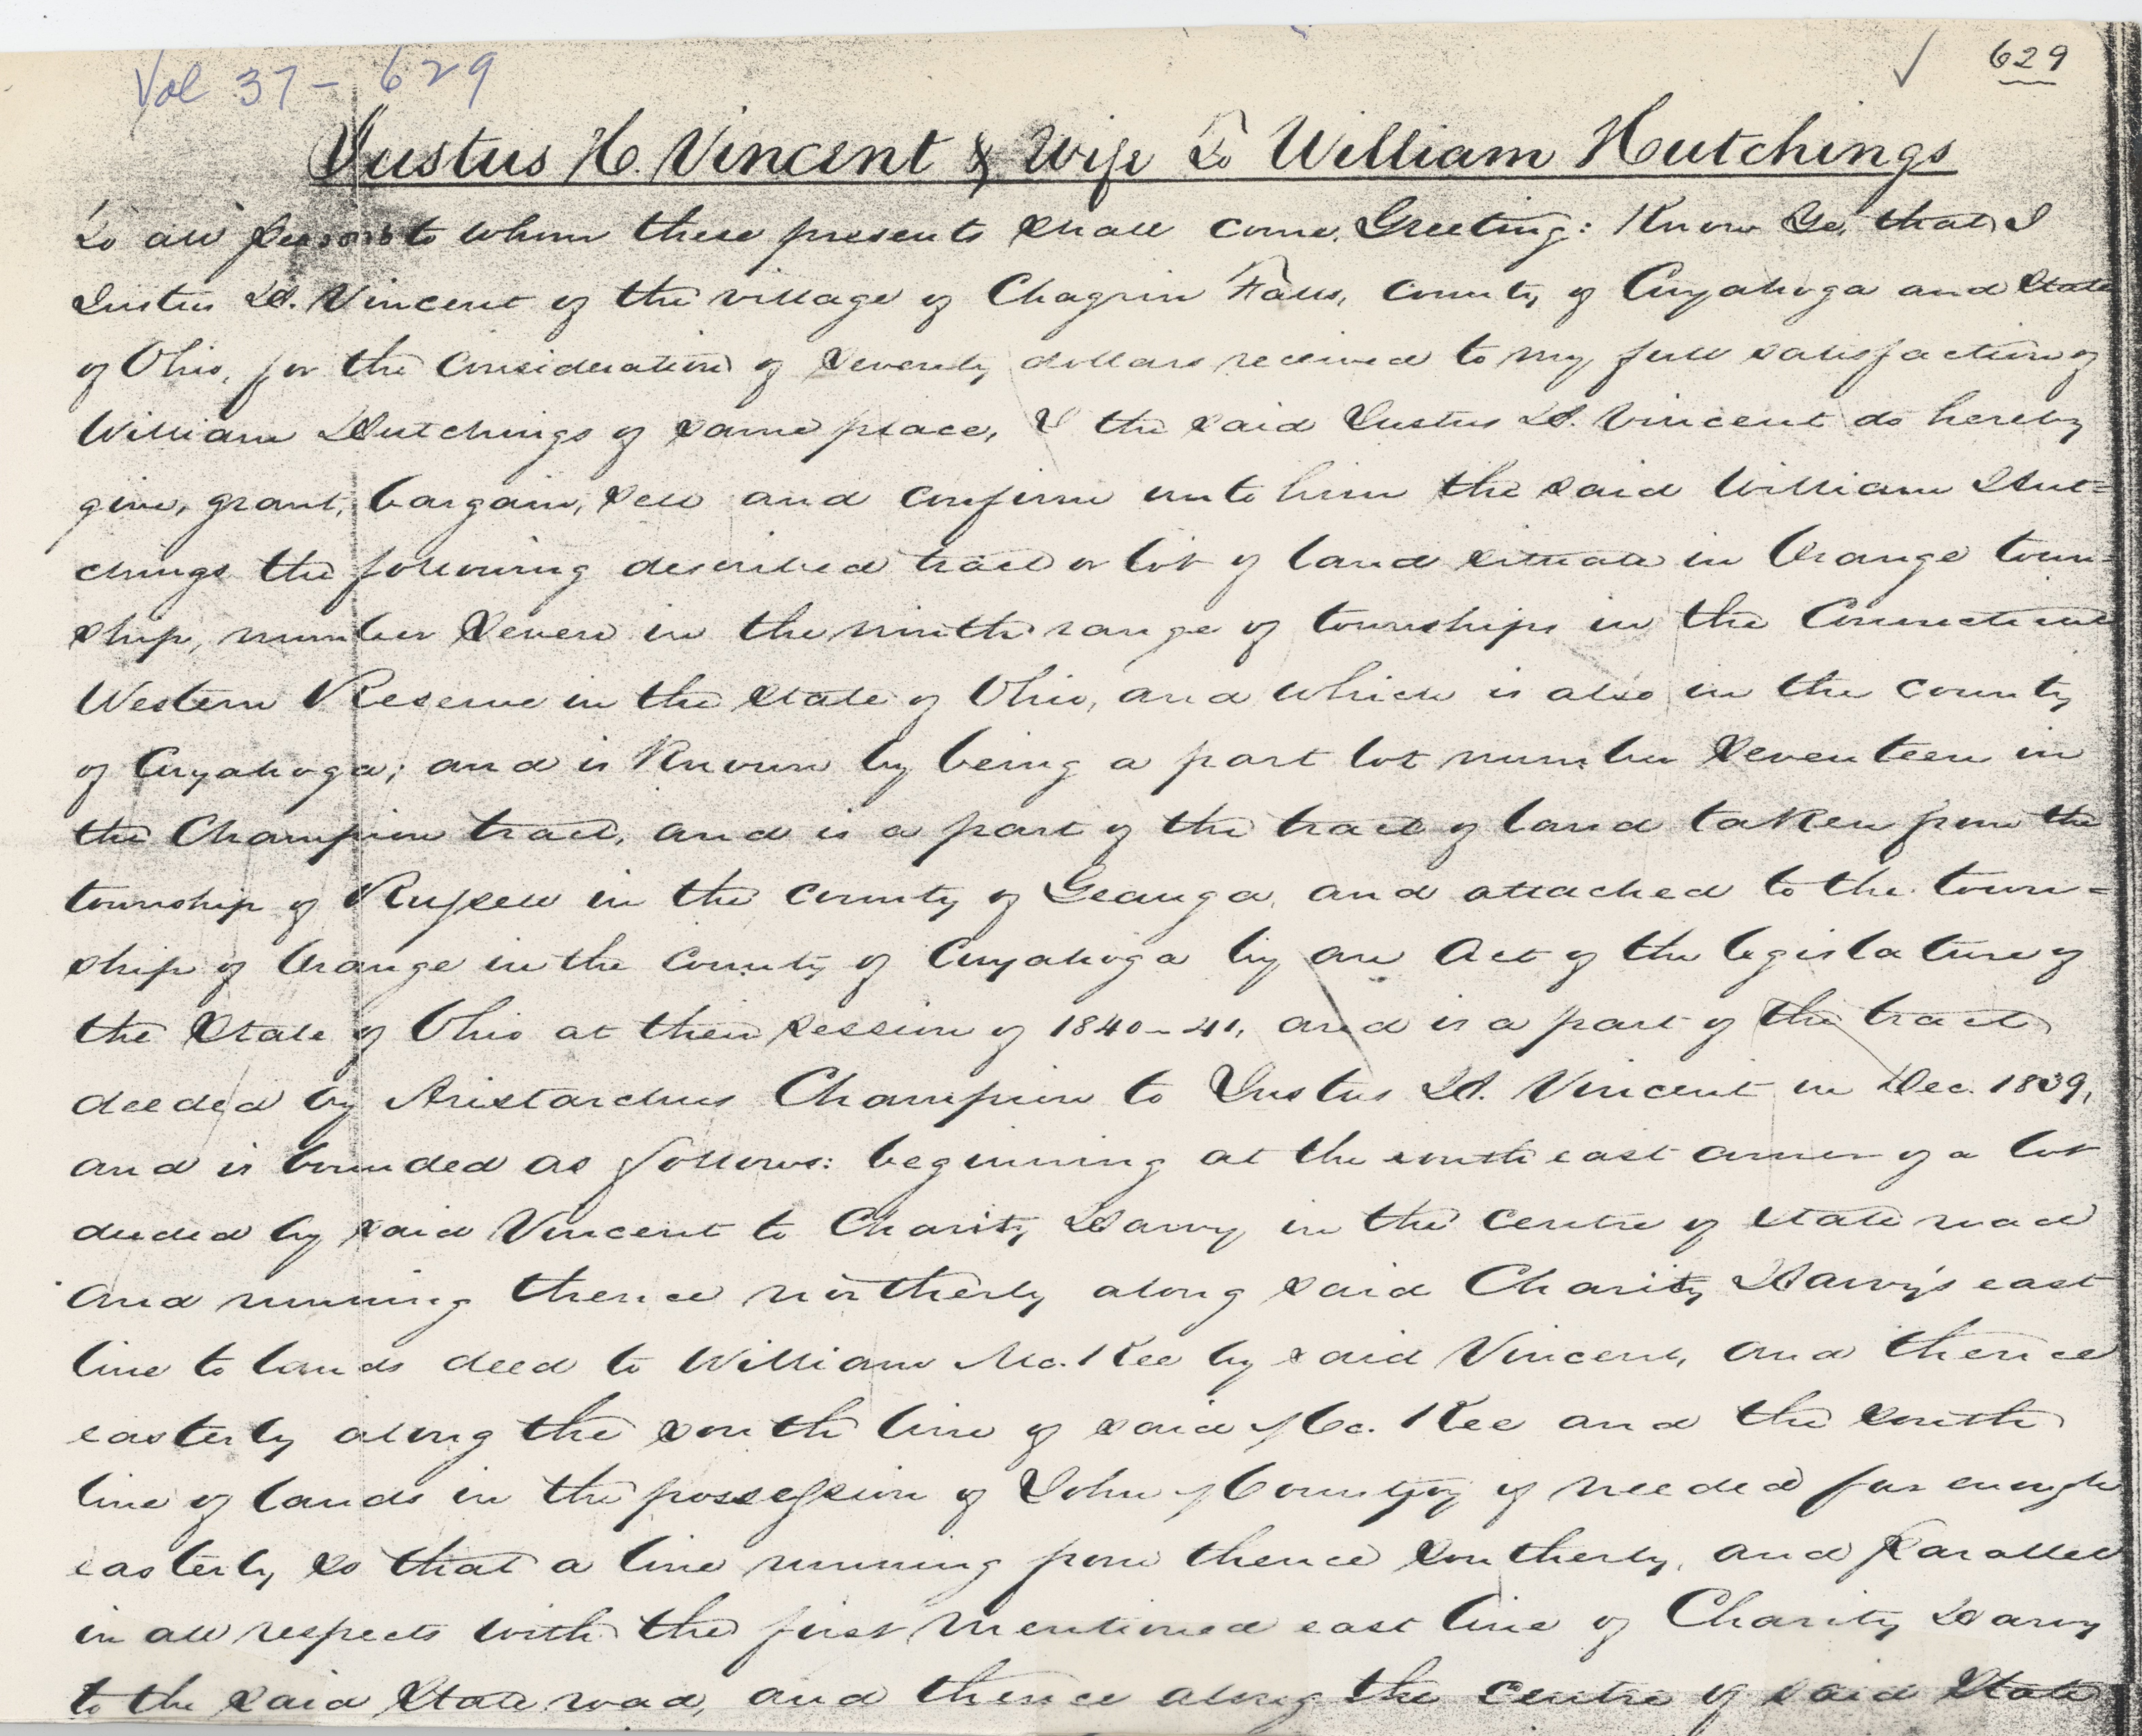 Vol 37 - 629
629
Justus H. Vincent & Wife To William Hutchings
To all Persons to whom these presents shall come, Greeting: Know Ye, that I
Justus H. Vincent of the village of Chagrin Falls, County of Cuyahoga and State
of Ohio, for the consideration of Seventy dollars received to my full satisfaction of
William Hutchings of same place, I the said Justus H. Vincent do hereby
give, grant, bargain, sell and confirm unto him the said William Hut=
chings the following described tract or lot of land situate in Orange town=
ship, number Seven in the ninth range of townships in the Connecticut
Western Reserve in the State of Ohio, and which is also in the county
of Cuyahoga; and is Known by being a part lot number Seventeen in
the Champion tract, and is a part of the tract of land taken from the
township of Russell in the county of Geauga, and attached to the town=
ship of Orange in the county of Cuyahoga by an Act of the legislature of
the State of Ohio at their session of 1840-41, and is a part of the tract
deeded by Aristarchus Champion to Justus H. Vincent in Dec. 1839,
and is bounded as follows: beginning at the south east corner of a lot
deeded by said Vincent to Charity in the centre of State road
and running thence northerly along said Charity east
line to lands deed to William Mc. Kee by said Vincent, and thence
easterly along the south line of said Mc. Kee and the south
line of lands in the possession of John if needed far enough
easterly so that a line running from thence Southerly, and Parallel
in all respects with the first mentioned east line of Charity
to the said State road, and thence along the centre of said State